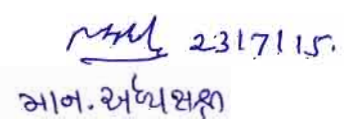 23/7/15.
માન.અધ્યક્ષશ્રી